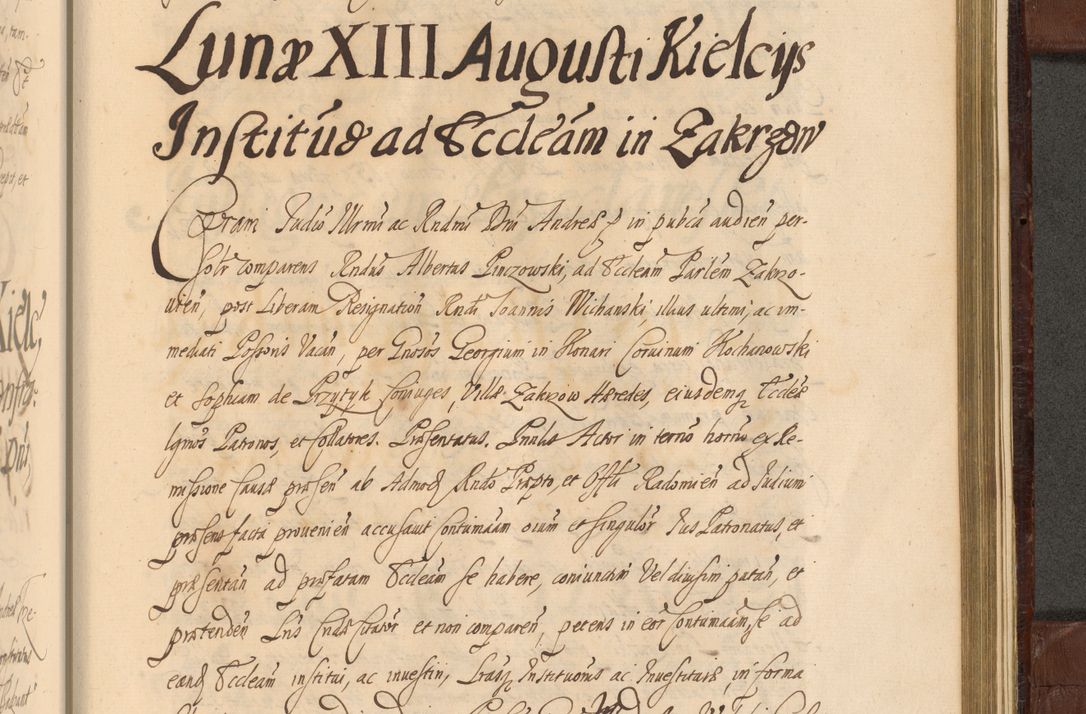 Lunæ XIII Augusti Kielcijs
Institūo ad Eccleām in Zakrzow
Coram Judio Illrmi ac Rndmi Dni Andreæ p in pubca audien per-
solr comparens Rndus Albertus Pinczowski, ad Eccleam Parlem Zakrzo-
vien, post Liberam Resignation Rndi Ioannis Wichanski, illius ultimi, ac im-
mediati Possoris Vacan, per Gnosos Georgium in Konari Coruinum Kochanowski
et Sophiam de Przytyk Coniuges, Villæ Zakrzow Hæredes, eiusdemq Eccleæ
lgmos Patronos, et Collatores. Præsentatus. Pnnlis Actor in termo horno ex Re-
missione Causæ præsen ab Admod Rndo Præpto, et Offli Radomien ad Iudicium
præsens facta prouenien accusauit Contumaam oium et singulor Ius Patronatus, et
præsentan ad præfatam Eccleam se habere, coniunctim Vel diuisim putan, et
prætenden Lris Cridæ Citator et non comparen, petens in eor Contumaam, se ad
eand Eccleam institui, ac inuestiri, Lrasq Institutonis ac Inuestituræ, in forma